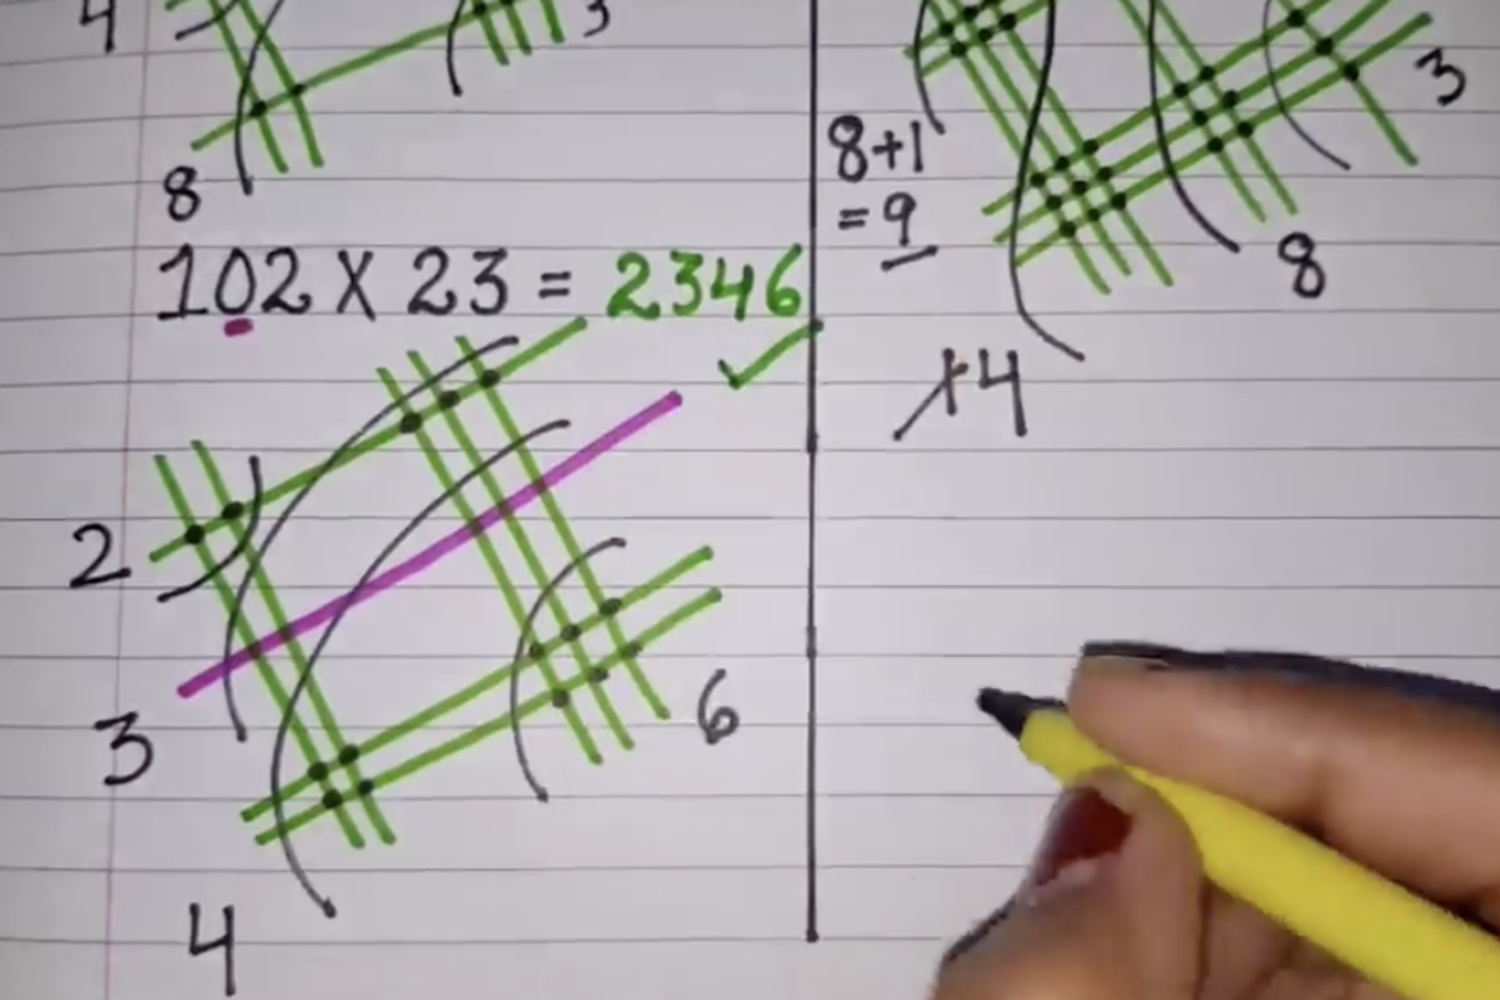 4
3
8
102 X 23 = 2346
2
3
4
6
3
8+1
= 9
8
14